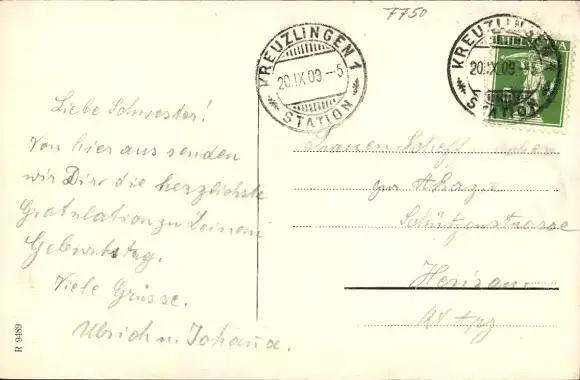 7750
KREUZLINGEN 1
20.IX.09 – 5
STATION
KREUZLINGEN
20.IX.09
STATION
Liebe Schwester!
Von hier aus senden
wir Dir die herzlichste
Gratulation zu Deinem
Geburtstag.
Viele Grüsse.
Ulrich u. Johana.
Frauen
zur Akazie
Schützenstrasse
Herisau
R 9489